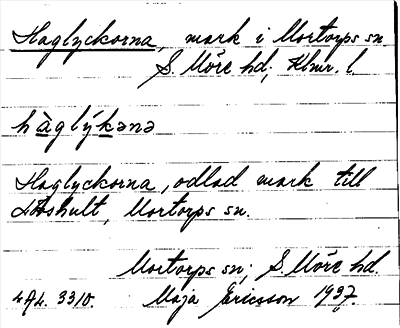 Haglyckorna, mark i Mortorps sn
S. Möre hd, Klmr. l.
hàglýkənə
Haglyckorna, odlad mark till
Åbshult, Mortorps sn.
Mortorps sn; S. Möre hd.
494. 3310. Maja Ericsson 1937.